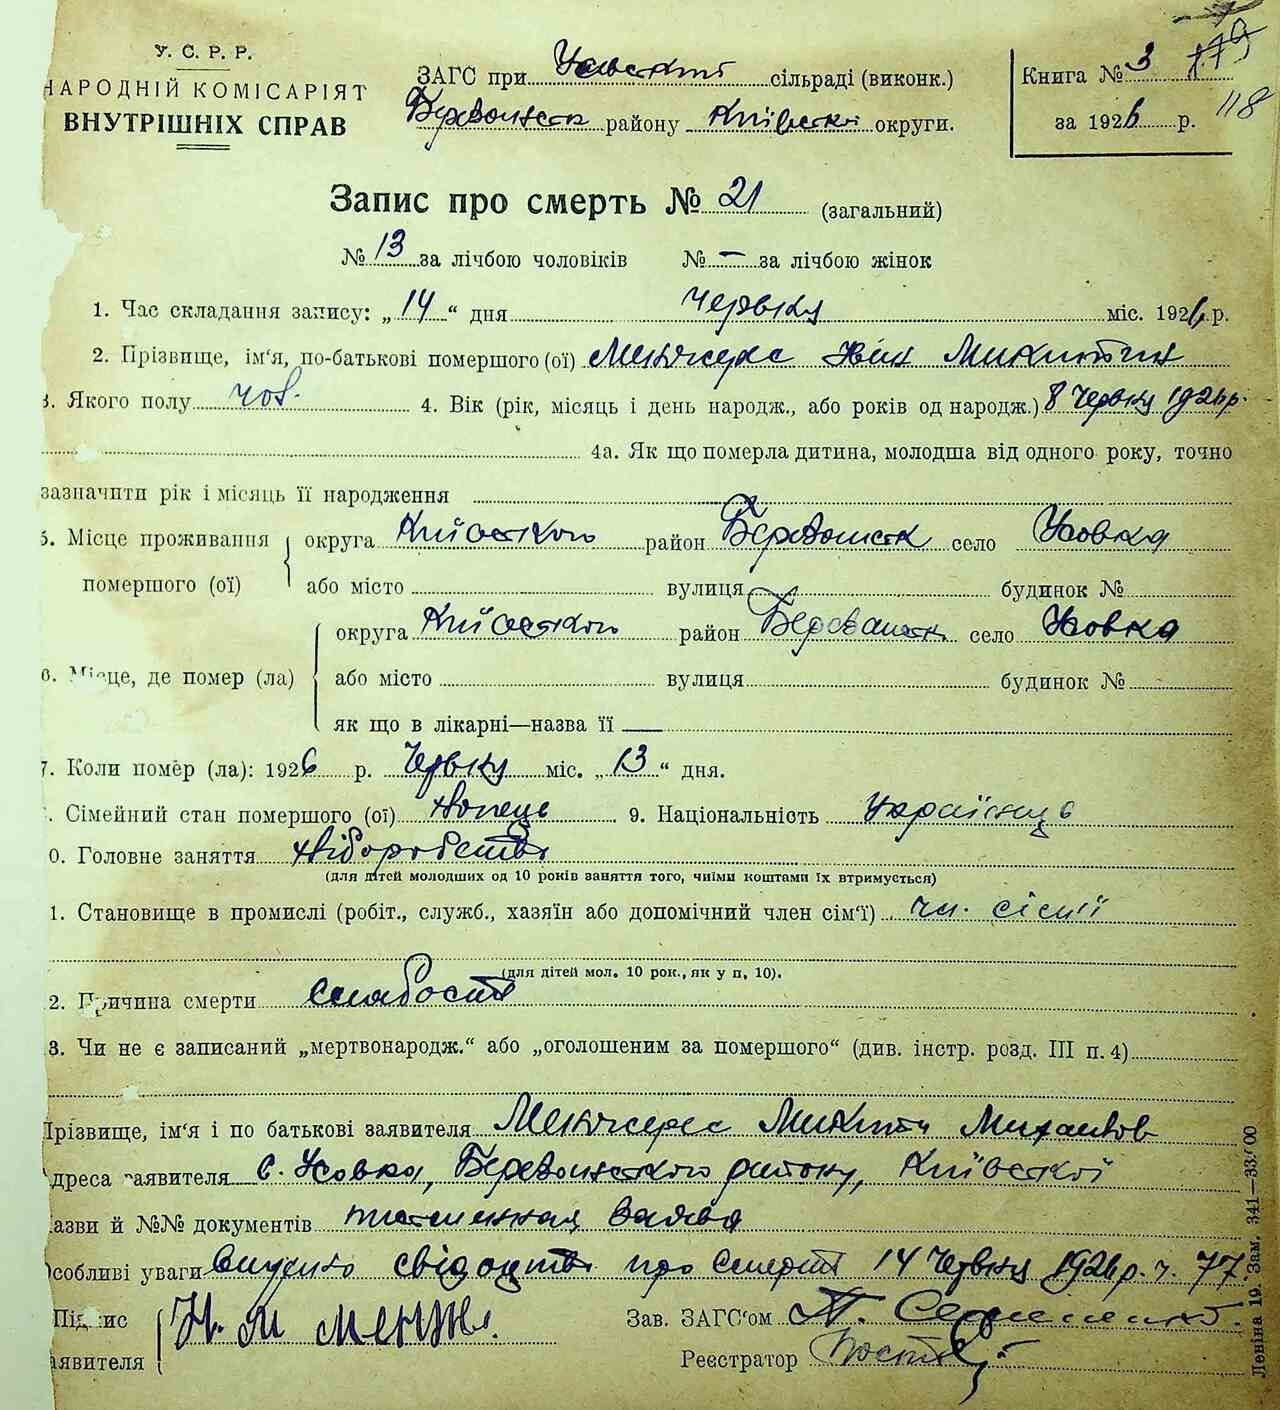 У. С. Р. Р.
НАРОДНІЙ КОМІСАРІЯТ
ВНУТРІШНІХ СПРАВ
ЗАГС при Усівській сільраді (виконк.)
району Київської округи.
Книга № 3 179
за 1926 р. 118
Запис про смерть № 21 (загальний)
№ 13 за лічбою чоловіків № — за лічбою жінок
1. Час складання запису: „14“ дня червня міс. 1926 р.
2. Прізвище, ім‘я, по-батькові помершого (ої) Менжерес Іван Микитич
3. Якого полу чол. 4. Вік (рік, місяць і день народж., або років од народж.) 8 Червня 1926 р.
4а. Як що померла дитина, молодша від одного року, точно
зазначити рік і місяць її народження
5. Місце проживання помершого (ої) округа Київського район село Усовка
або місто вулиця будинок №
6. Місце, де помер (ла) округа Київського район село Усовка
або місто вулиця будинок №
як що в лікарні—назва її —
7. Коли помер (ла): 1926 р. Червня міс. „13“ дня.
. Сімейний стан помершого (ої) 9. Національність Українець
0. Головне заняття хліборобство
(для дітей молодших од 10 років заняття того, чиїми коштами їх втримується)
1. Становище в промислі (робіт., служб., хазяїн або допомічний член сім‘ї) чл. сім'ї
(для дітей мол. 10 рок., як у п. 10).
2. Причина смерти слабость
3. Чи не є записаний „мертвонародж.“ або „оголошеним за помершого“ (див. інстр. розд. III п. 4)
Прізвище, ім‘я і по батькові заявителя Менжерес Микита Михайлов
Адреса заявителя с. Усовка, району, Київської
азви й №№ документів заява
Особливі уваги Видано свідоцтво про смерть 14 Червня 1926 р. ч. 77
Підпис заявителя Н. М менже.
Зав. ЗАГС‘ом
Реєстратор
Леніна 19. Зам. 341—33.000